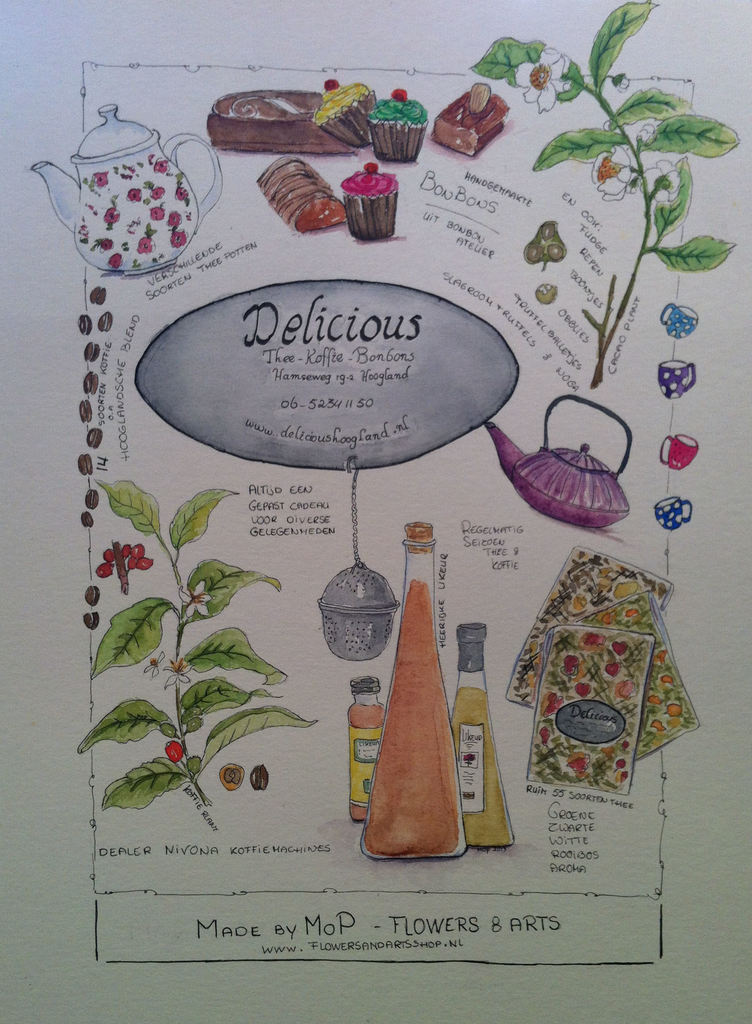 HANDGEMAAKTE
BONBONS
UIT BONBON
ATELIER
EN OOK:
FUDGE
REPEN
BOONTJES
OBBLIES
TRUFFELBALLETJES
SLAGROOM TRUFFELS & NOGA
CACAO PLANT
VERSCHILLENDE
SOORTEN THEE POTTEN
14 SOORTEN KOFFIE
O.A
HOOGLANDSCHE BLEND
Delicious
Thee-Koffie-Bonbons
Hamseweg 19-2 Hoogland
06-52341150
www.delicioushoogland.nl
ALTIJD EEN
GEPAST CADEAU
VOOR DIVERSE
GELEGENHEDEN
REGELMATIG
SEIZOEN
THEE &
KOFFIE
HEERIJKE LIKEUR
LIKEUR
LIKEUR
Delicious
RUIM 55 SOORTEN THEE
GROENE
ZWARTE
WITTE
ROOIBOS
AROMA
KOFFIE PLANT
DEALER NIVONA KOFFIEMACHINES
MADE BY MOP - FLOWERS & ARTS
WWW.FLOWERSANDARTSSHOP.NL